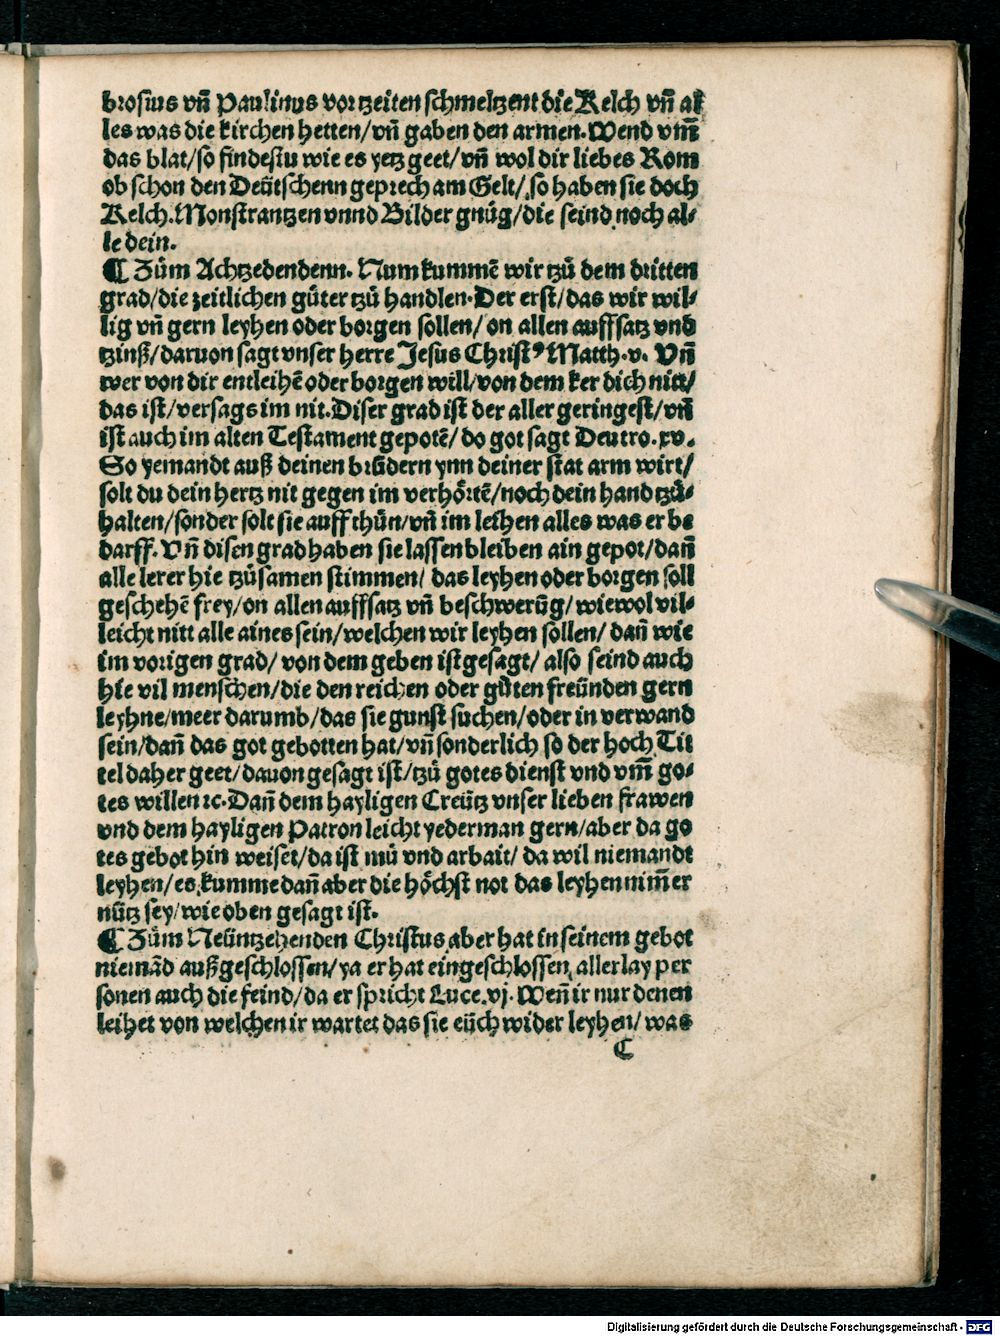 brosius vñ Paulinus vor tzeiten schmeltzent die Kelch vñ al
les was die kirchen hetten/vñ gaben den armen. Wend vm̃
das blat/so findestu wie es yetz geet/vñ wol dir liebes Rom
ob schon den Deütschenn geprech am Gelt/so haben sie doch
Kelch. Monstrantzen vnnd Bilder gnůg/die seind noch al⸗
le dein.
¶ Zům Achtzedendenn. Num kummẽ wir tzů dem dritten
grad/die zeitlichen gůter tzů handlen. Der erst/das wir wil⸗
lig vñ gern leyhen oder borgen sollen/on allen auffsatz vnd
tzinß/daruon sagt vnser herre Jesus Christꝰ Matth. v. Vñ
wer von dir entleihẽ oder borgen will/von dem ker dich nitt/
das ist/versags im nit. Diser grad ist der aller geringest/vñ
ist auch im alten Testament gepotẽ/do got sagt Deutro. xv.
So yemandt auß deinen brůdern ynn deiner stat arm wirt/
solt du dein hertz nit gegen im verhörtẽ/noch dein hand tzů⸗
halten/sonder solt sie auff thůn/vñ im leihen alles was er be
darff. Vñ disen grad haben sie lassen bleiben ain gepot/dañ
alle lerer hie tzůsamen stimmen/ das leyhen oder borgen soll
geschehẽ frey/on allen auffsatz vñ beschwerũg/wiewol vil⸗
leicht nitt alle aines sein/welchen wir leyhen sollen/ dañ wie
im vorigen grad/ von dem geben ist gesagt/ also seind auch
hie vil menschen/die den reichen oder gůten freünden gern
leyhne/meer darumb/das sie gunst suchen/oder in verwand
sein/dañ das got gebotten hat/vñ sonderlich so der hoch Tit
tel daher geet/dauon gesagt ist/tzů gotes dienst vnd vm̃ go⸗
tes willen ꝛc. Dañ dem hayligen Creütz vnser lieben frawen
vnd dem hayligen Patron leicht yederman gern/aber da go
tes gebot hin weiset/da ist mů vnd arbait/ da wil niemandt
leyhen/es kumme dañ aber die höchst not das leyhen nim̃er
nütz sey/wie oben gesagt ist.
¶ Zům Neüntzehenden Christus aber hat in seinem gebot
niemãd außgeschlossen/ya er hat eingeschlossen allerlay per
sonen auch die feind/da er spricht Luce. vj. Weñ ir nur denen
leihet von welchen ir wartet das sie eüch wider leyhen/ was
C
Digitalisierung gefördert durch die Deutsche Forschungsgemeinschaft - DFG